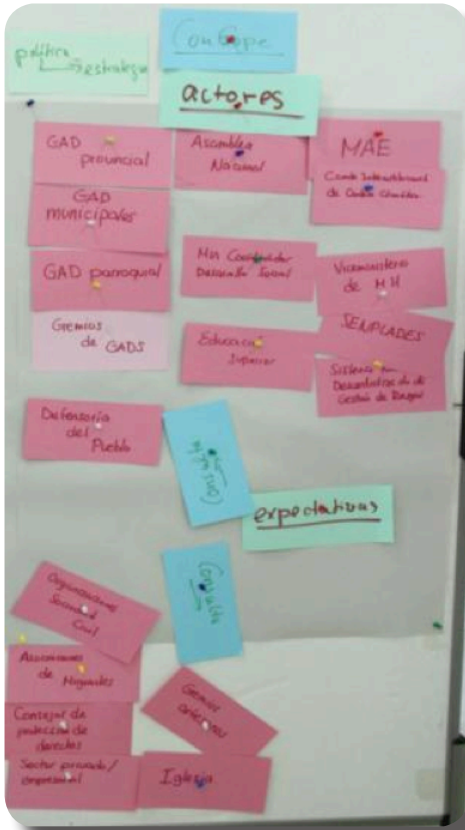 político
estrategia
Congope
actores
GAD
provincial
Asamblea
Nacional
MAE
Comite Interinstitucional
de Cambio Climático
GAD
municipales
GAD parroquial
Min Coordinador
Desarrollo Social
Viceministerio
de MH
Gremios
de GADS
Educación
Superior
SENPLADES
Sistema
Descentralizado de
Gestión de Riesgos
Defensoria
del
Pueblo
Consulta
expectativas
Consulta
Organizaciones
Sociedad
Civil
Asociaciones
de Migrantes
Gremios
artesanos
Consejos de
protección de
derechos
Sector privado/
empresarial
Iglesia